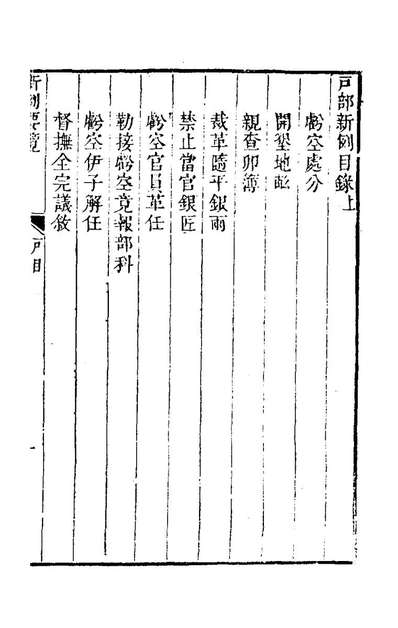 戸部新例目錄上
虧空處分
開墾地畝
親查卯簿
裁革隨平銀兩
禁止當官銀匠
虧空官員革任
勒接虧空竟報部科
虧空伊子解任
督撫全完議敘
新例要覽
戸目
一